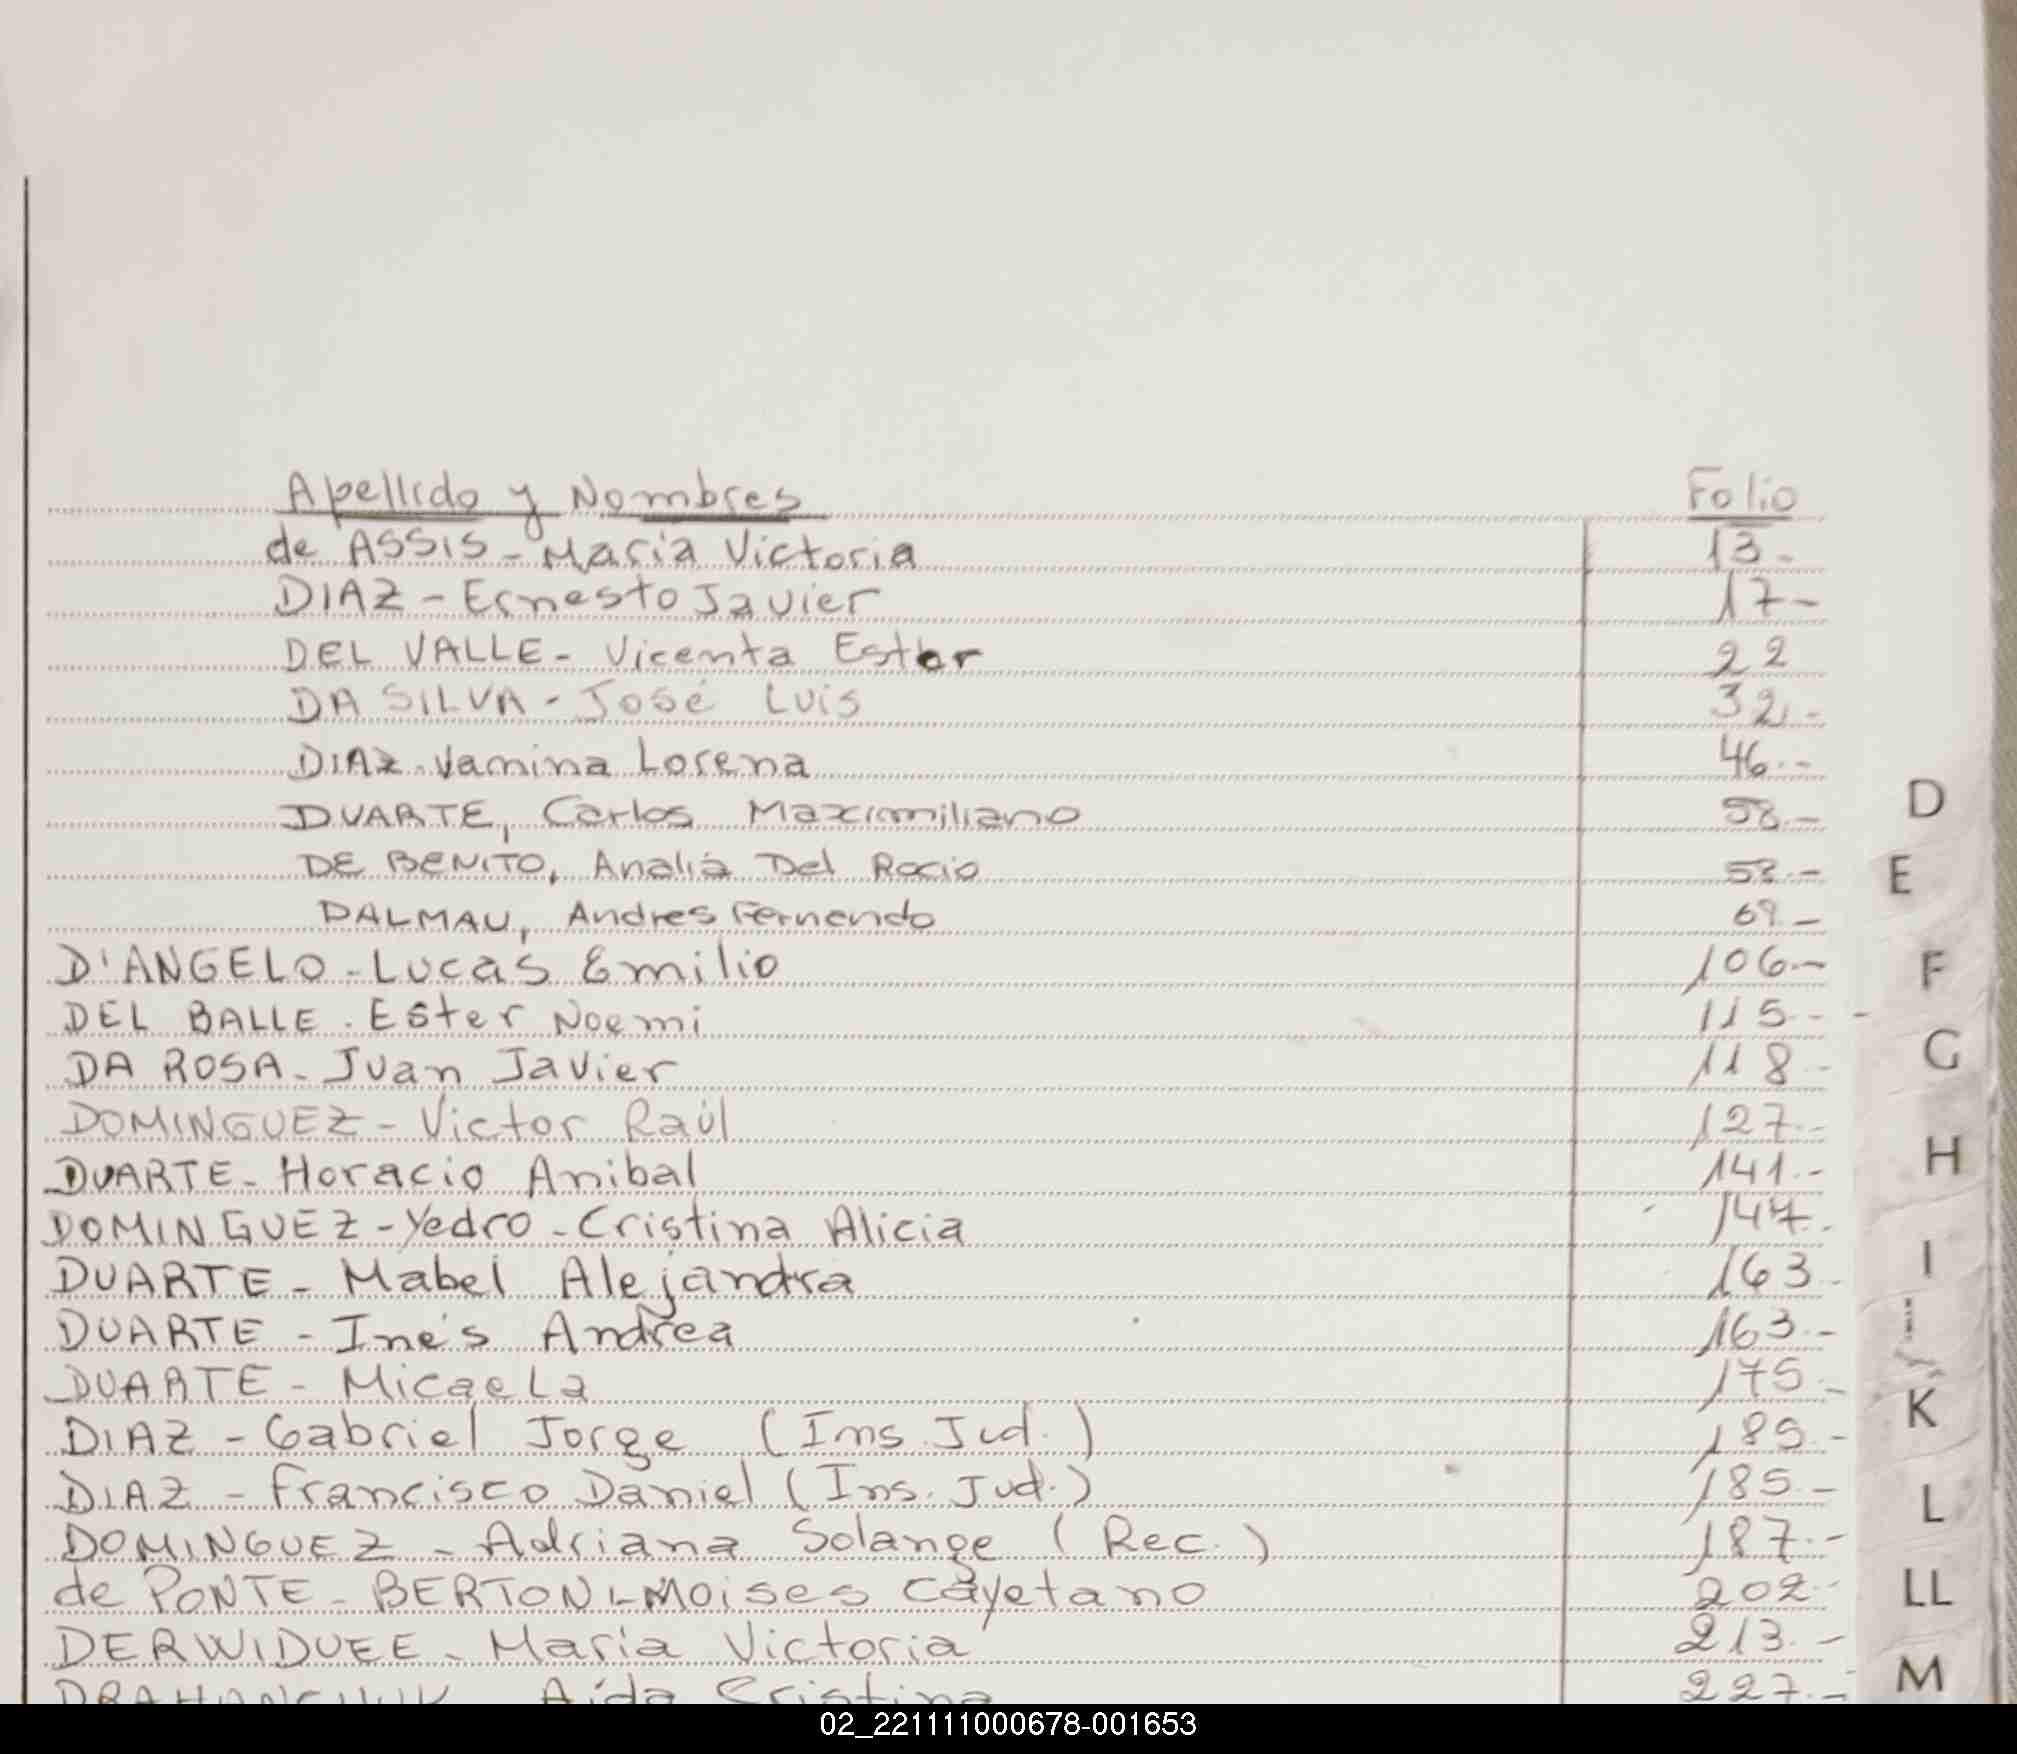 Apellido y Nombres Folio
de ASSIS - María Victoria 13.-
DIAZ - Ernesto Javier 17-
DEL VALLE - Vicenta Ester 22
DA SILVA - José Luis 32.-
DIAZ - Vamina Lorena 46.-
DUARTE, Carlos Maximiliano 58.-
DE BENITO, Analía Del Rocio 58.-
DALMAU, Andres Fernando 69.-
D'ANGELO - Lucas Emilio 106.-
DEL BALLE - Ester Noemi 115.-
DA ROSA - Juan Javier 118.-
DOMINGUEZ - Victor Raúl 127.-
DUARTE - Horacio Anibal 141.-
DOMINGUEZ - Yedro - Cristina Alicia 147.-
DUARTE - Mabel Alejandra 163.-
DUARTE - Inés Andrea 163.-
DUARTE - Micaela 175.-
DIAZ - Gabriel Jorge (Ins. Jud.) 185.-
DIAZ - Francisco Daniel (Ins. Jud.) 185.-
DOMINGUEZ - Adriana Solange (Rec.) 187.-
de PONTE - BERTONI - Moises Cayetano 202.-
DERWIDUEE - María Victoria 213.-
Aída Cristina 227.-
D
E
F
G
H
I
K
L
LL
M
02_221111000678-001653